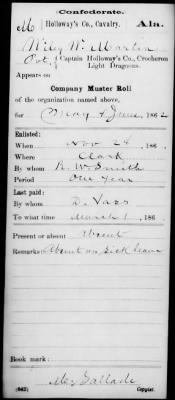 Confederate.
M Holloway's Co., Cavalry. Ala.
Wiley W. Martin
Pvt., Captain Holloway's Co., Crocheron
Light Dragoons.
Appears on
Company Muster Roll
of the organization named above,
for May & June, 1862
Enlisted:
When Nov 28, 186 .
Where Clark
By whom R. W. Smith
Period One Year
Last paid:
By whom D. Vass
To what time March 1, 186 .
Present or absent Absent
Remarks: Absent on sick leave
Book mark:
(642) Copyist.